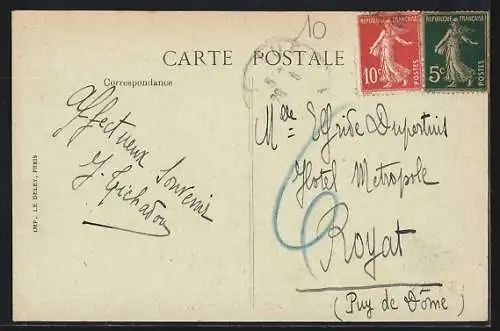 10
CARTE POSTALE
Correspondance
REPUBLIQUE FRANÇAISE
10c
POSTES
REPUBLIQUE FRANÇAISE
5c
POSTES
Affectueux Souvenir
IMP. LE DELEY, PARIS
Mde Elfride Dupertuis
Hotel Metropole
Royat
(Puy de Dôme)
6